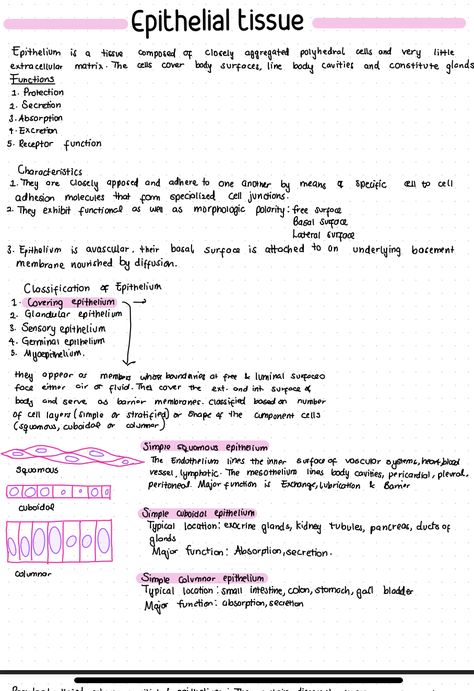 Epithelial tissue
Epithelium is a tissue composed of closely aggregated polyhedral cells and very little
extracellular matrix. The cells cover body surfaces, line body cavities and constitute glands
Functions
1. Protection
2. Secretion
3. Absorption
4. Excretion
5. Receptor function
Characteristics
1. They are closely apposed and adhere to one another by means of specific cell to cell
adhesion molecules that form specialized cell junctions.
2. They exhibit functional as well as morphologic polarity: free surface
Basal surface
Lateral surface
3. Epithelium is avascular, their basal surface is attached to an underlying basement
membrane nourished by diffusion.
Classification of Epithelium
1. Covering epithelium →
2. Glandular epithelium
3. Sensory epithelium
4. Germinal epithelium
5. Myoepithelium.
they appear as membrns whose boundaries at free & luminal surfaces
face either air or fluid. They cover the ext. and int. surface of
body and serve as barrier membranes. Classified based on number
of cell layers (simple or stratified) or shape of the component cells
(squamous, cuboidal or columnar)
Simple squamous epithelium
The Endothelium lines the inner surface of vascular systems, heart, blood
vessel, lymphatic. The mesothelium lines body cavities, pericardial, pleural,
peritoneal. Major function is Exchange, Lubrication & Barrier
squamous
cuboidal
columnar
Simple cuboidal epithelium
Typical location: exocrine glands, kidney tubules, pancreas, ducts of
glands
Major function: Absorption, secretion.
Simple columnar epithelium
Typical location: small intestine, colon, stomach, gall bladder
Major function: absorption, secretion